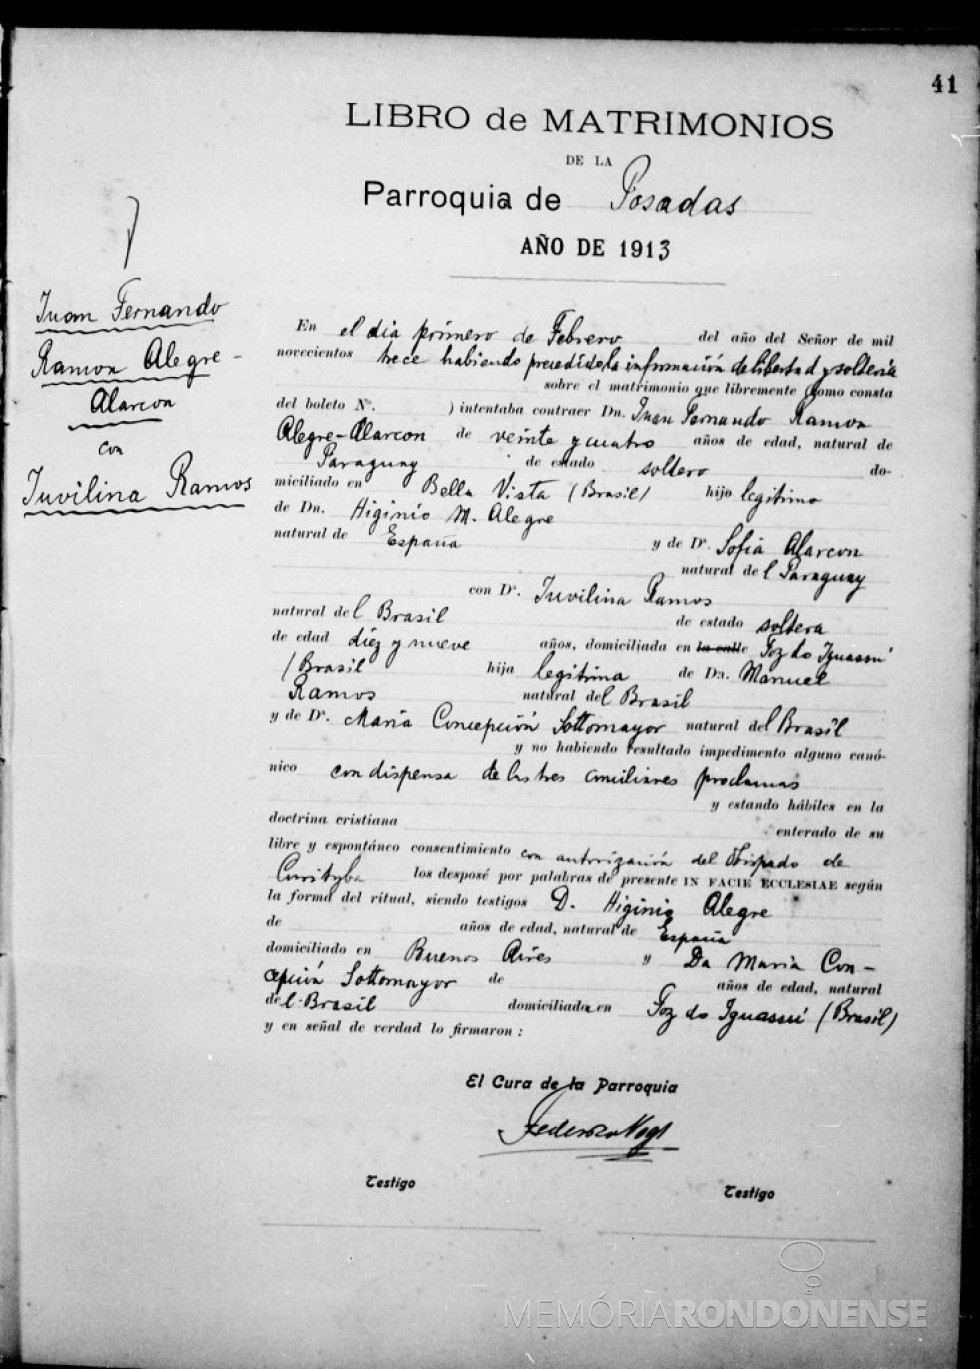 41
LIBRO de MATRIMONIOS
DE LA
Parroquia de Posadas
AÑO DE 1913
Juan Fernando
Ramon Alegre-
Alarcon
con
Juvilina Ramos
En el dia primero de Febrero del año del Señor de mil
novecientos trece habiendo precedido la información de libertad y soltería
sobre el matrimonio que libremente (como consta
del boleto N°. ) intentaba contraer Dn. Juan Fernando Ramon
Alegre-Alarcon de veinte y cuatro años de edad, natural de
Paraguay de estado soltero do-
miciliado en Bella Vista (Brasil) hijo legitimo
de Dn. Higinio M. Alegre
natural de España y de Dª. Sofia Alarcon
natural del Paraguay
con Dª. Juvilina Ramos
natural del Brasil de estado soltera
de edad diez y nueve años, domiciliada en la calle Foz do Iguassú
(Brasil hija legitima de Dn. Manuel
Ramos natural del Brasil
y de Dª. Maria Concepción Sottomayor natural del Brasil
y no habiendo resultado impedimento alguno canó-
nico con dispensa de las tres conciliares proclamas
y estando hábiles en la
doctrina cristiana enterado de su
libre y espontáneo consentimiento con autorización del Obispado de
Curityba los desposé por palabras de presente IN FACIE ECCLESIAE según
la forma del ritual, siendo testigos D. Higinio Alegre
de años de edad, natural de España
domiciliado en Buenos Aires y Da Maria Con-
cepción Sottomayor de años de edad, natural
del Brasil domiciliada en Foz do Iguassú (Brasil)
y en señal de verdad lo firmaron:
El Cura de la Parroquia
Federico Vogt
Testigo Testigo
MEMÓRIARONDONENSE